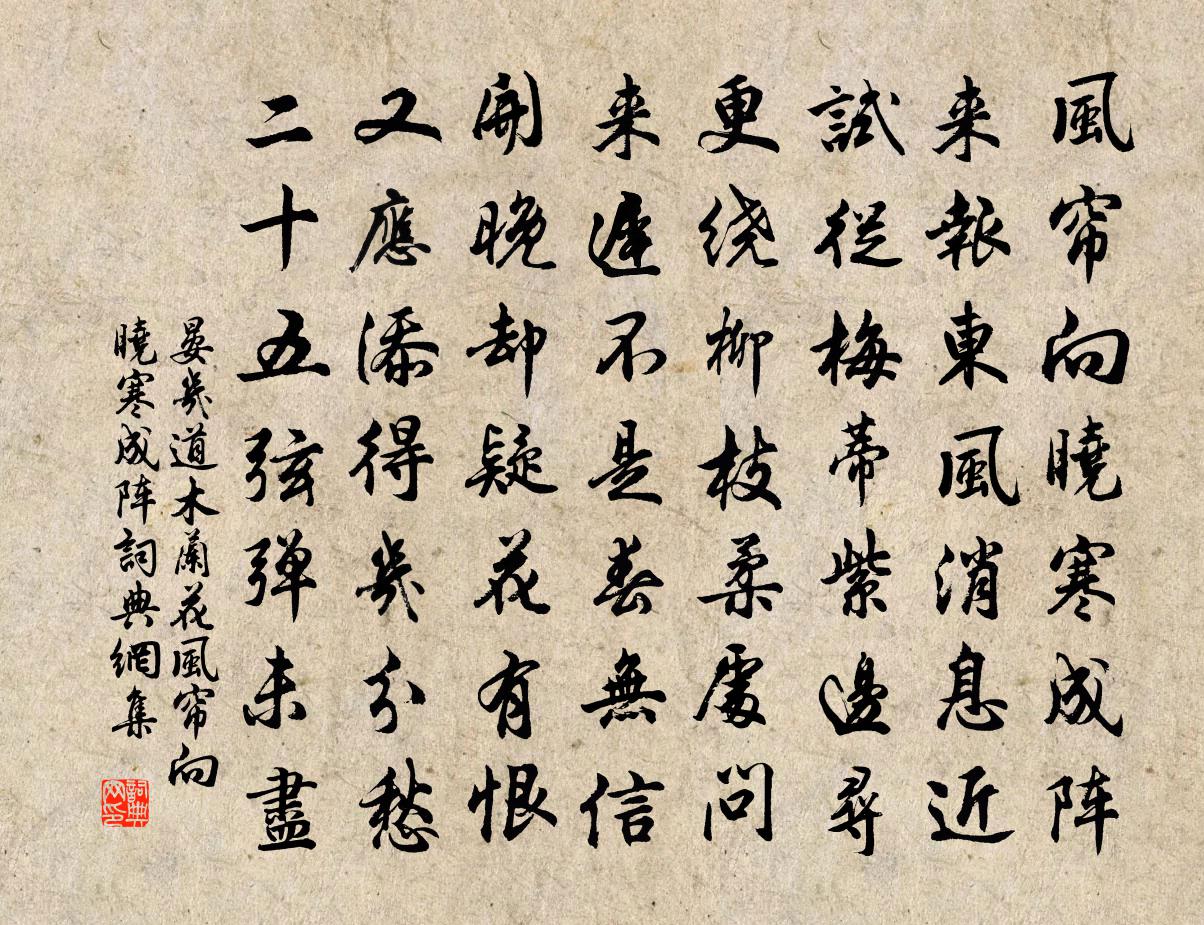 風帘向曉寒成阵
来報東風消息近
試從梅蒂紫邊尋
更绕柳枝柔處問
来遲不是春無信
開晚却疑花有恨
又應添得幾分愁
二十五弦弹未盡
晏幾道木蘭花風帘向
曉寒成阵詞典網集
詞典
网印